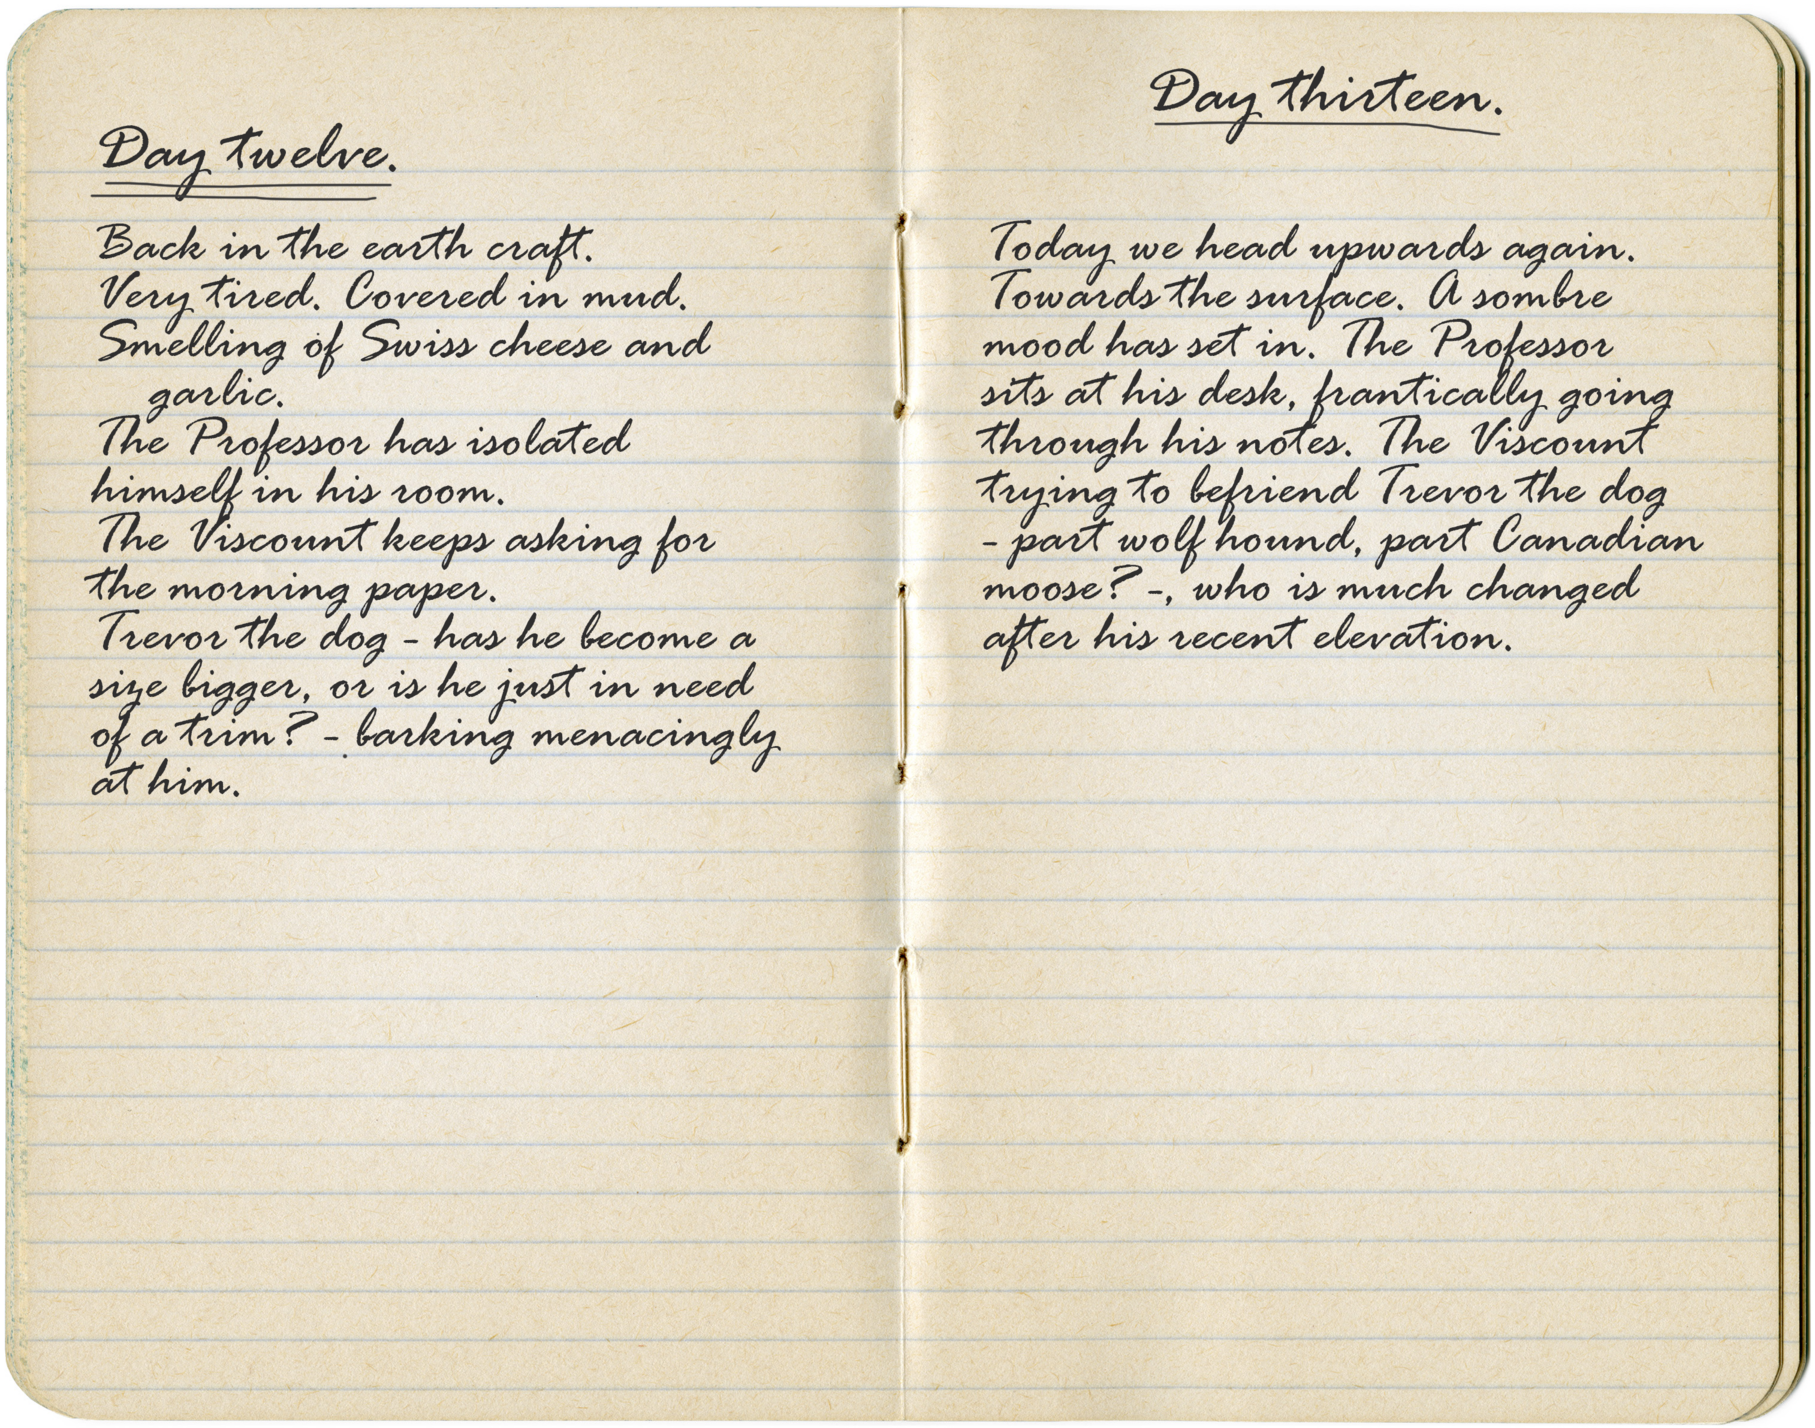 Day twelve.
Back in the earth craft.
Very tired. Covered in mud.
Smelling of Swiss cheese and
garlic.
The Professor has isolated
himself in his room.
The Viscount keeps asking for
the morning paper.
Trevor the dog - has he become a
size bigger, or is he just in need
of a trim? - barking menacingly
at him.
Day thirteen.
Today we head upwards again.
Towards the surface. A sombre
mood has set in. The Professor
sits at his desk, frantically going
through his notes. The Viscount
trying to befriend Trevor the dog
- part wolf hound, part Canadian
moose? -, who is much changed
after his recent elevation.